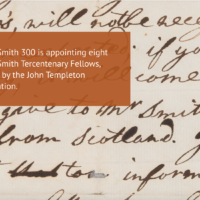 s, will not be rece
ted. if yo
Smith 300 is appointing eight
Smith Tercentenary Fellows,
by the John Templeton
ation.
will come
give to Mr Smith
from Scotland.
to inform